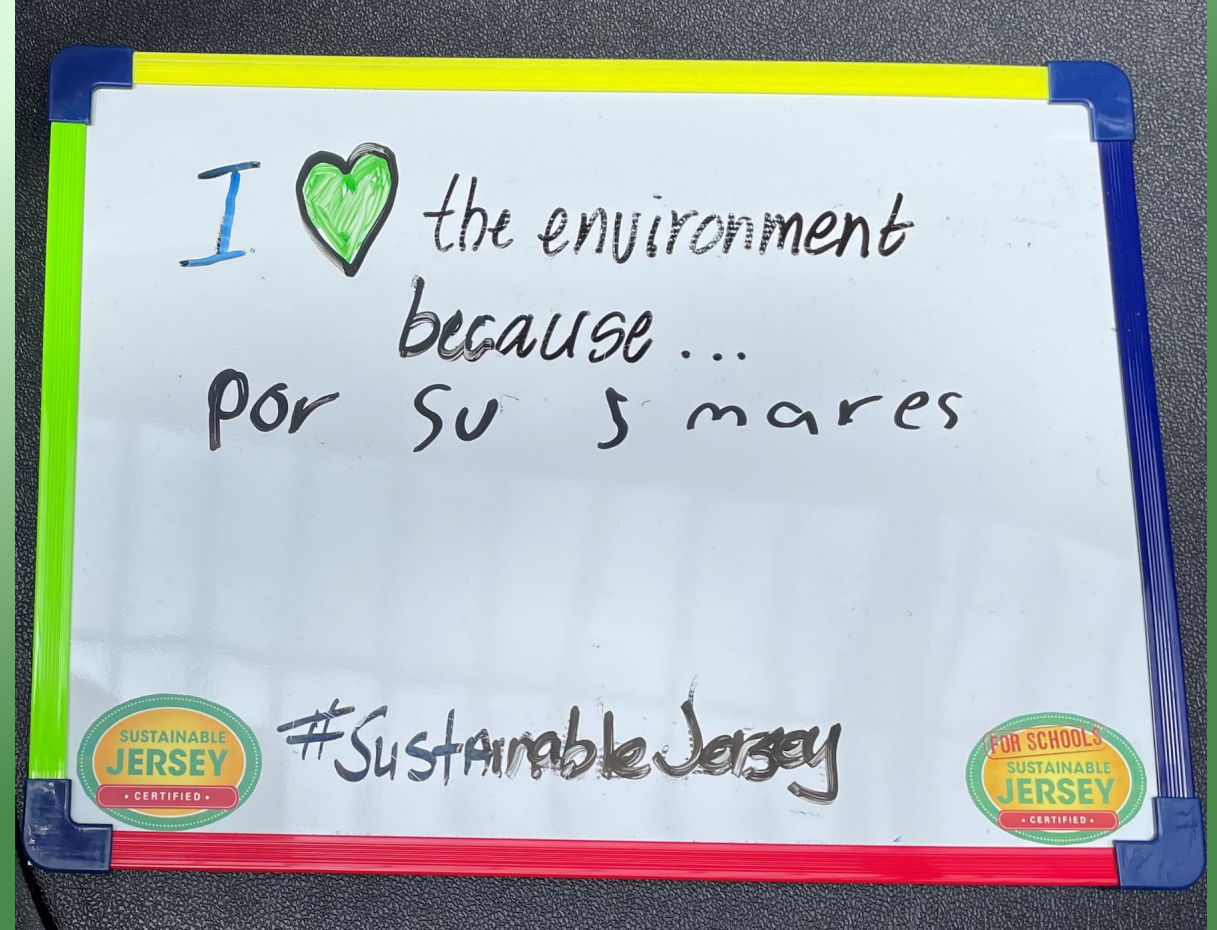 I the environment
because...
por su s mares
#SustainableJersey
SUSTAINABLE
JERSEY
• CERTIFIED •
FOR SCHOOLS
SUSTAINABLE
JERSEY
• CERTIFIED •